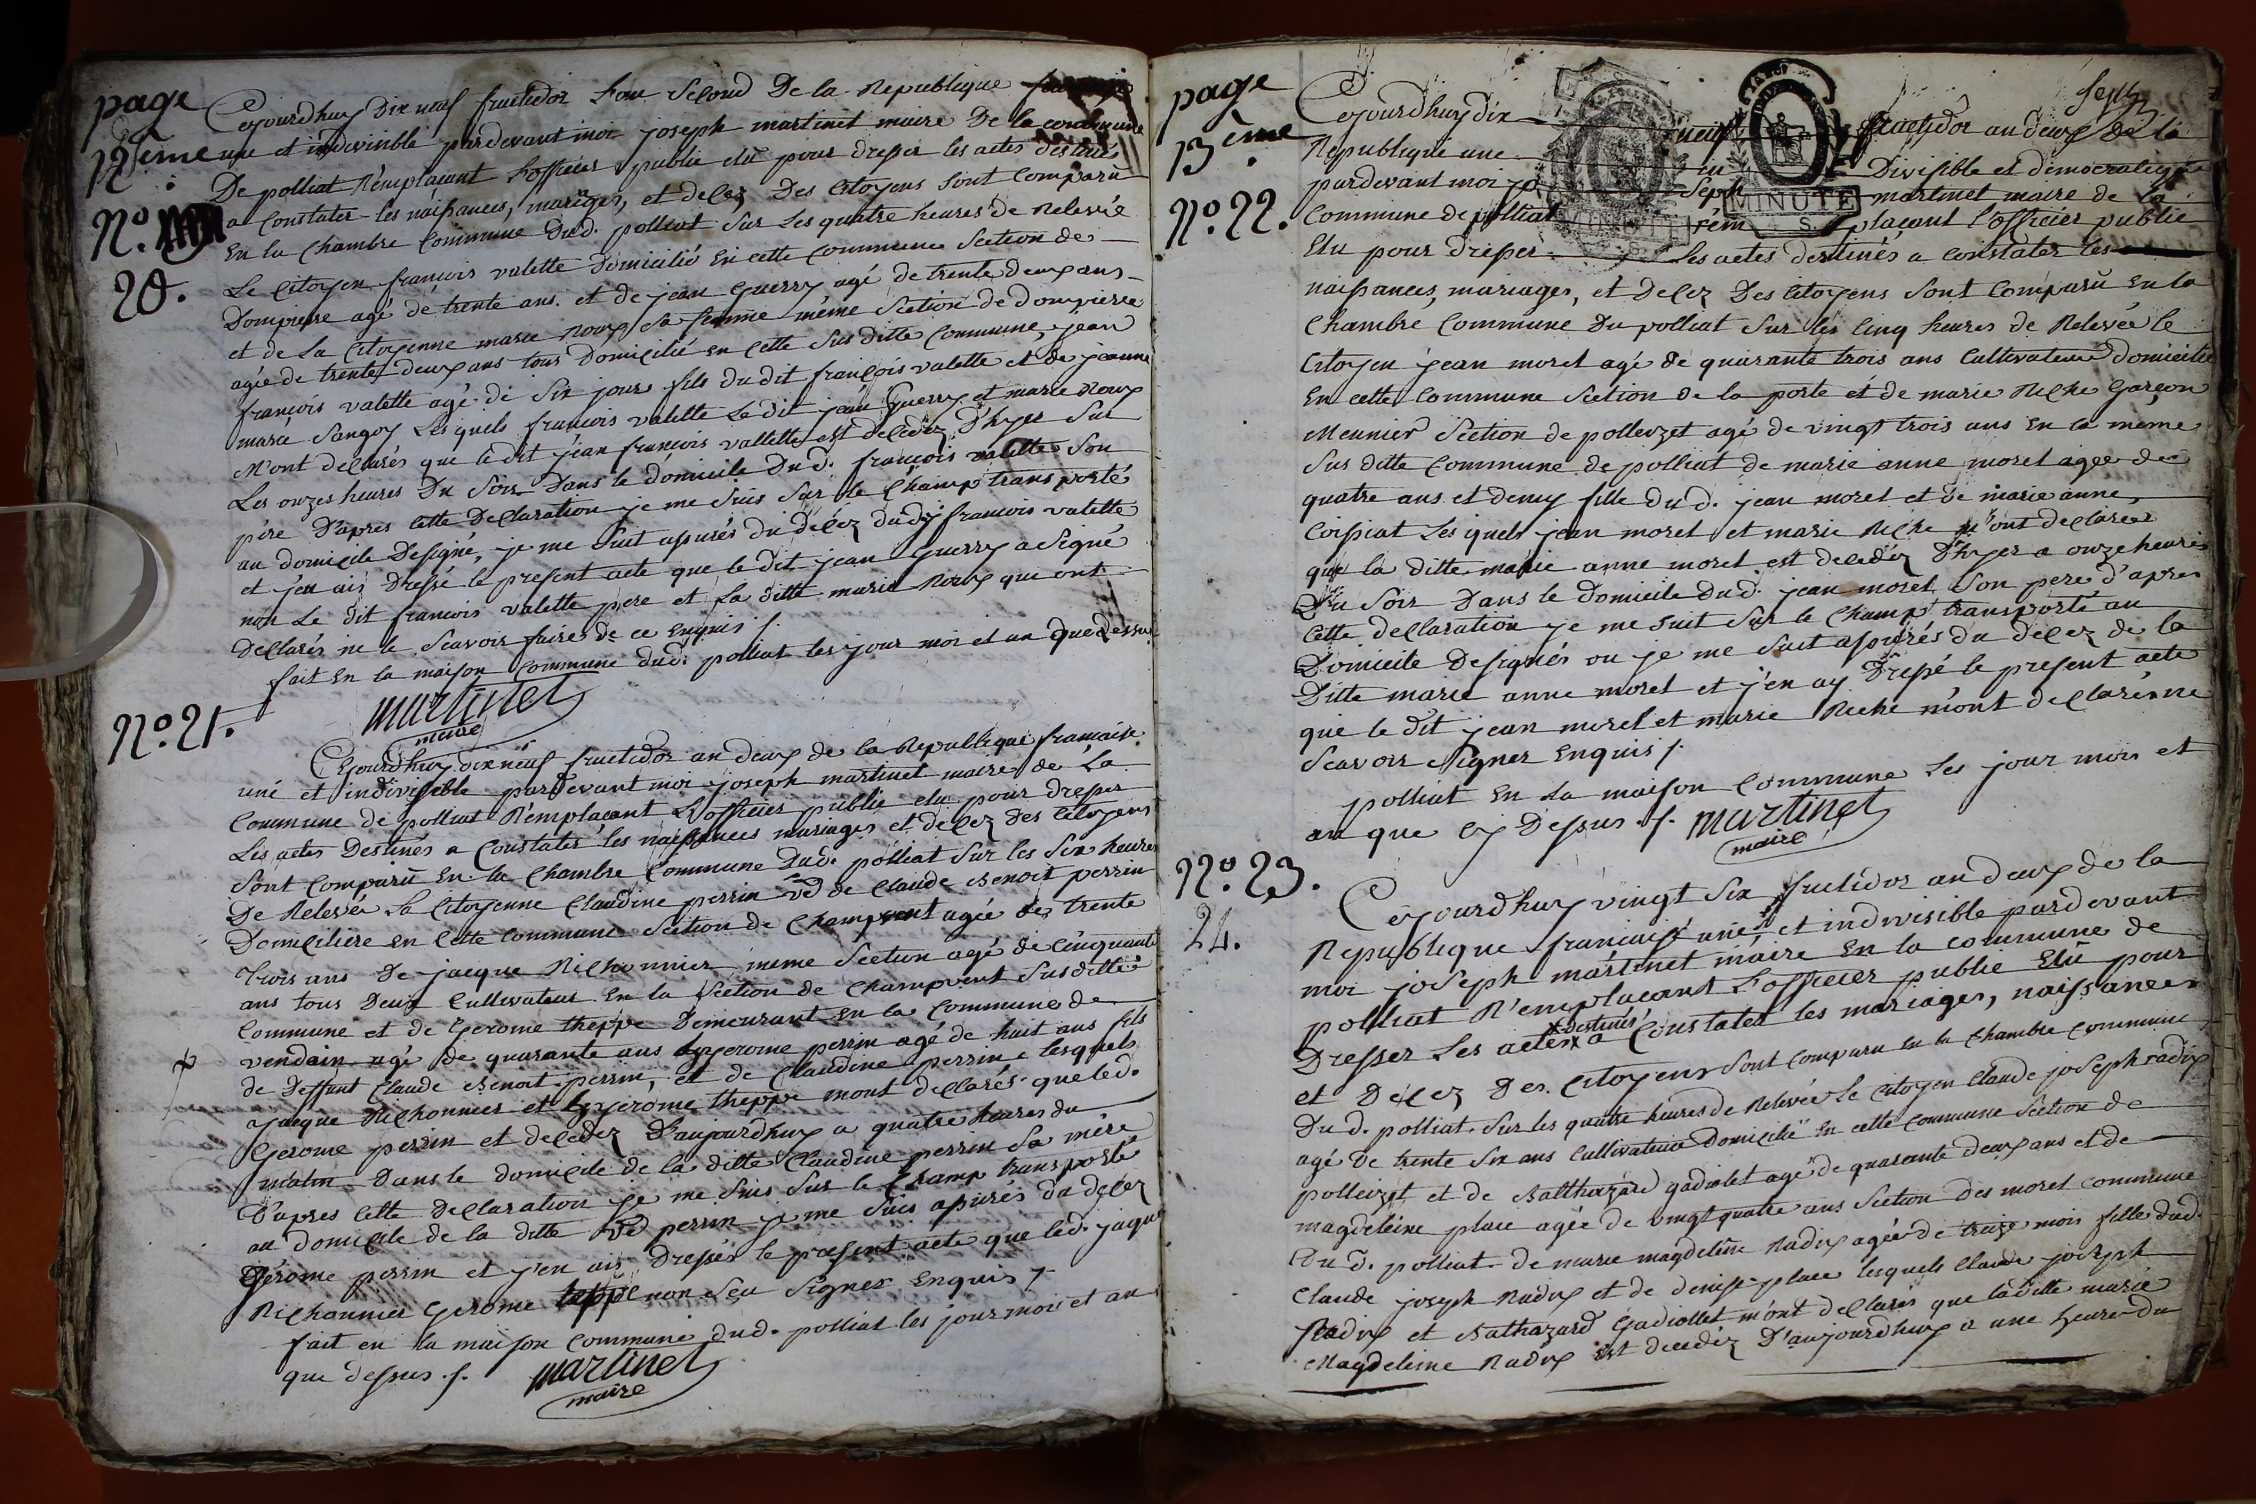 page
12ème
N°.
20.
Cejourdhuy Dix neuf fructidor L'an Second De la Republique
une et indivisible pardevant moi joseph martinet maire De la commune
De polliat Rémplaçant L'officier public elu pour dresser les actes destinés
a Constater les naissances, mariages, et decez Des Citoyens Sont Comparu
En la Chambre Commune Dud. polliat Sur Les quatre heures de Relevée
Le Citoyen françois valette Domicilié En cette Commune Section de
Dompierre agé de trente ans. et de jean Guerry agé de trente deux ans
et de La Citoyenne marie Roux Sa femme même Section de dompierre
agée de trente deux ans tous Domicilié en Cette Sus ditte Commune, jean
françois valette agé de Six jours fils du dit françois valette et de jeanne
marie Sangoy Les quels françois valette Le dit jean Guerry et marie Roux
M'ont declarés que le dit jean françois vallette est decedez D'hyer Sur
Les onzes heures Du Soir Dans le domicile Du d. françois valette Son
père D'apres Cette Declaration je me Suis Sur le Champ transporté
au domicile Designé, je me Suit assurés du décéz dudit françois valette
et j'en ais Dressé le present acte que le dit jean Guerry a Signé
non Le dit francois valette pere et La ditte marie Roux qui ont
Declarés ne le Scavoir faire de ce Enquis /.
fait En la maison Commune dud. polliat les jour moi et an que dessus
martinet
maire
N°. 21.
Cejourdhuy dix neuf fructidor an deux de la Republique francaise
uné et indivisible pardevant moi joseph martinet maire de La
Commune de polliat Rémplaçant L'officier public elu pour dresser
Les actes Destinés a Constater les naissances mariages et décéz des Citoyens
Sont Comparu En la Chambre Commune Dud. polliat Sur les Six heures
De Relevée La Citoyenne Claudine perrin vd de Claude Benoit perrin
Domiciliere en Cette Commune Section de Champvent agée de trente
trois ans De jacque Richonnier même Section agé de Cinquante
ans tous Deux Cultivateur En la Section de Champvent Sus ditte
Commune et de Gerome theppe Demeurant en la Commune de
vendain agé de quarante ans Gerome perrin agé de huit ans fils
de Deffunt Claude Benoit perrin, et de Claudine perrin Lesquels
jacque Richonnier et Gerome theppe mont declarés que led.
Gerome perrin et decedez D'aujourdhuy a quatre heures du
matin Dans le domicile de la ditte Claudine perrin Sa mère
D'apres Cette declaration je me Suis Sur le Champ transporté
au domicile de la ditte vd perrin je me Suis assurés du decez
Gérome perrin et j'en ais Dressés le present acte que led. jaque
Richonnier Gerome teppe non Sçu Signer Enquis /.
fait en la maison Commune dud. polliat les jour mois et an
que dessus /.
martinet
maire
page
13ème
N°. 22.
Cejourdhuy dix neuf fructidor an deux de la
Republique une in Divisible et democratique
pardevant moi jo Seph martinet maire de La
Commune de polliat rém plaçant L'officier public
Elu pour dresser Les actes destinés a constater les
MINUTE
S
naissances, mariages, et Decez Des Citoyens Sont Comparu En la
Chambre Commune Du polliat Sur les Cinq heures de Relevée le
Citoyen jean moret agé de quarante trois ans Cultivateur domicilié
En cette Commune Section De la porte et de marie Riche Garçon
Meunier Section de polleizet agé de vingt trois ans En la même
Sus ditte Commune de polliat de marie anne moret agée de
quatre ans et demy fille du d. jean moret et de marie anne
Coissiat Les quels jean moret et marie Riche m'ont declarées
que la ditte marie anne moret est decedéz D'hyer a onze heures
Du Soir Dans le domicile Du d. jean moret Son pere d'apres
Cette declaration je me Suit Sur le Champ transporté au
Domicile Designés ou je me Suit assurés du decez de la
Ditte marie anne moret et j'en ay Dressé le present acte
que le dit jean moret et marie Riche mont declaré ne
Scavoir Signer Enquis /.
polliat En La maison Commune Les jour mois et
an que Cy Dessus /. martinet
maire
N°. 23.
24.
Cejourdhuy vingt Six fructidor an deux de la
Republique française uné et indivisible pardevant
moi joseph martinet maire En la commune de
polliat R'emplacant L'officier public Elu pour
Dresser Les actes destinés a Constater les mariages, naissances
et Decez Des Citoyens Sont Comparu En la Chambre Commune
Du d. polliat Sur les quatre heures de Relevée Le Citoyen Claude joseph radix
agé De trente Six ans Cultivateur Domicilié En cette Commune Section de
polleizet et de Balthazard gadiolet agé de quarante deux ans et de
magdeleine place agée de vingt quatre ans Section des moret Commune
Du d. polliat De marie magdeleine Radix agée de treize mois fille dud.
Claude joseph Radix et de denise place lesquels Claude joseph
Radix et Balthazard Gadiollet m'ont declarés que la ditte marie
Magdeleine Radix est decedéz D'aujourdhuy a une heure du